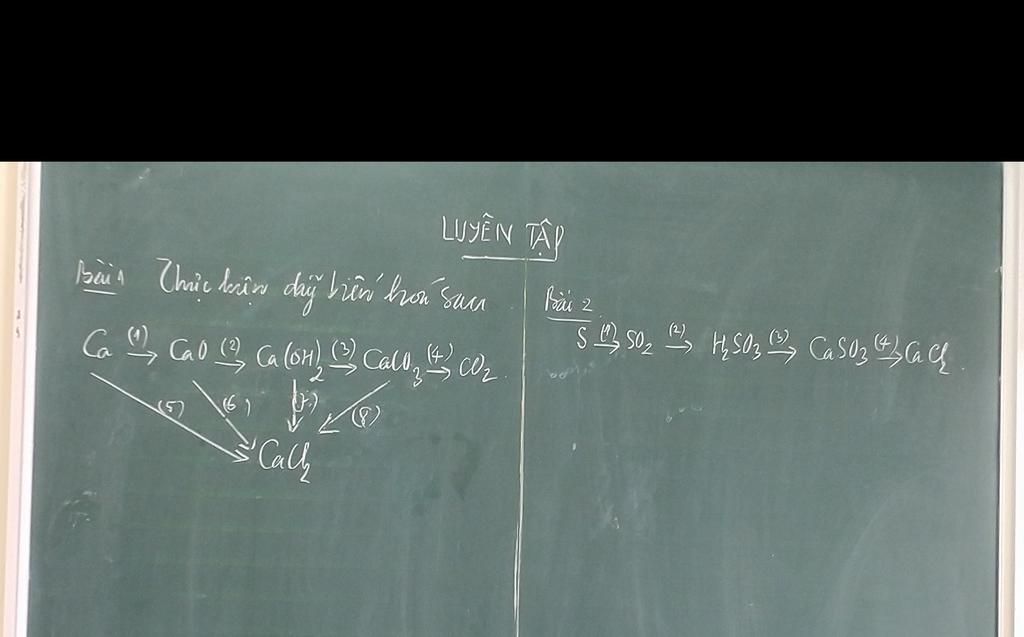 LUYÊN TẬP
Bài 1 Thực hiện dãy biến hoá sau
Ca (1)→ CaO (2)→ Ca(OH)2 (3)→ CaCO3 (4)→ CO2
(5) (6) (7) (8)
CaCl2
Bài 2
S (1)→ SO2 (2)→ H2SO3 (3)→ CaSO3 (4)→ CaCl2